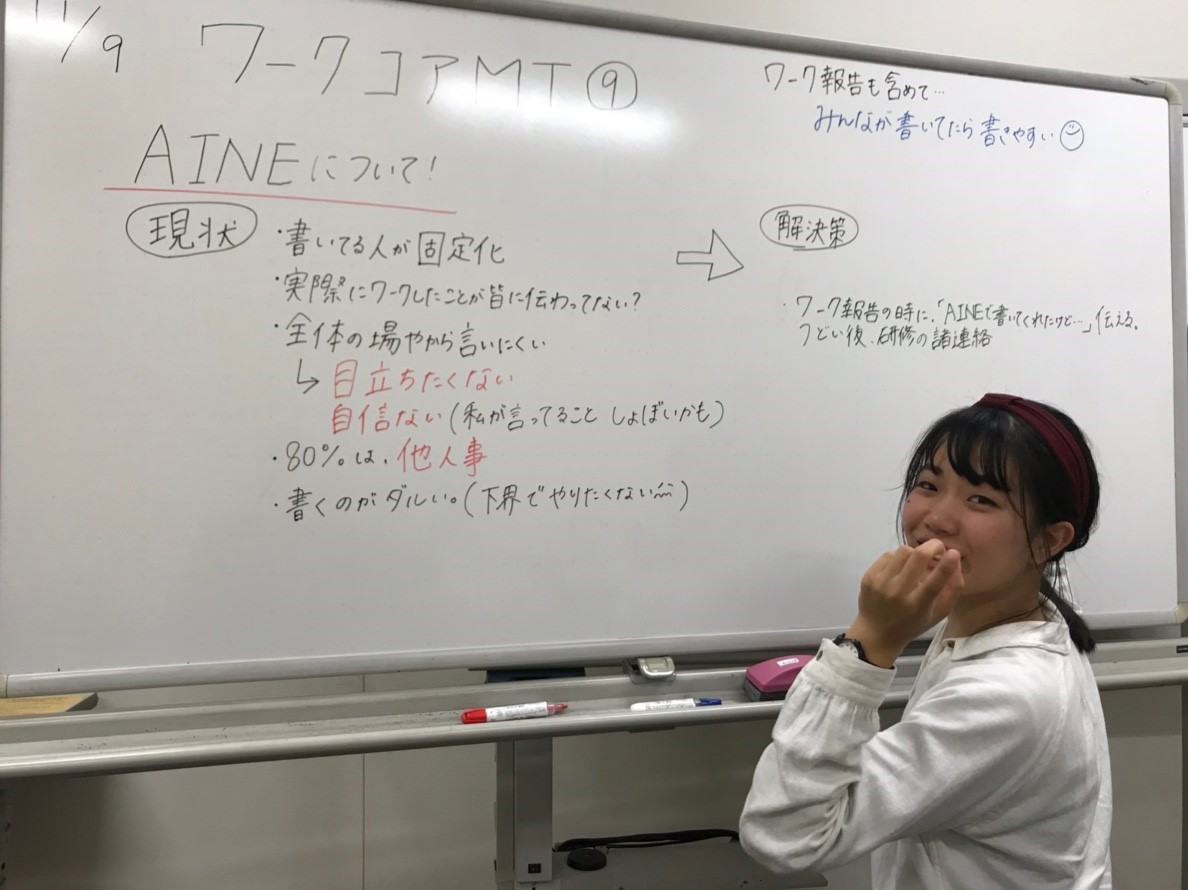 11/9 ワークコアMT⑨
AINEについて!
現状
・書いてる人が固定化
・実際にワークしたことが皆に伝わってない?
・全体の場やから言いにくい
↳ 目立ちたくない
自信ない(私が言ってること しょぼいかも)
・80%は、他人事
・書くのがダルい。(下界でやりたくない)
ワーク報告も含めて…
みんなが書いてたら書きやすい
解決策
・ワーク報告の時に、「AINEで書いてくれたけど…」伝える。
つどい後、研修の諸連絡